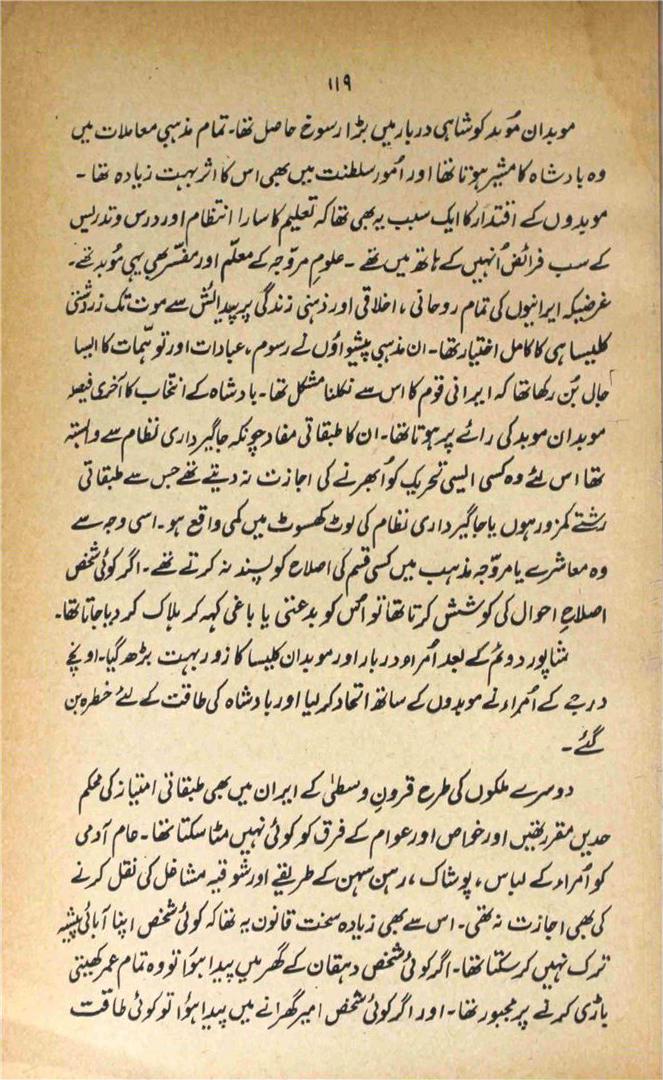 ۱۱۹
موبدان مُوبد کو شاہی دربار میں بڑا رسوخ حاصل تھا۔ تمام مذہبی معاملات میں
وہ بادشاہ کا مشیر ہوتا تھا اور اُمور سلطنت میں بھی اس کا اثر بہت زیادہ تھا ۔
موبدوں کے اقتدار کا ایک سبب یہ بھی تھا کہ تعلیم کا سارا انتظام اور درس و تدریس
کے سب فرائض اُنہیں کے ہاتھ میں تھے ۔ علومِ مروّجہ کے معلّم اور مفسّر بھی یہی مُوبد تھے۔
غرضیکہ ایرانیوں کی تمام روحانی ، اخلاقی اور ذہنی زندگی پر پیدائش سے موت تک زردشتی
کلیسا ہی کا کامل اختیار تھا۔ ان مذہبی پیشواؤں نے رسوم، عبادات اور توہّمات کا ایسا
جال بُن رکھا تھا کہ ایرانی قوم کا اس سے نکلنا مشکل تھا۔ بادشاہ کے انتخاب کا آخری فیصلہ
موبدان موبد کی رائے پر ہوتا تھا۔ ان کا طبقاتی مفاد چونکہ جاگیرداری نظام سے وابستہ
تھا اس لئے وہ کسی ایسی تحریک کو اُبھرنے کی اجازت نہ دیتے تھے جس سے طبقاتی
رشتے کمزور ہوں یا جاگیرداری نظام کی لوٹ کھسوٹ میں کمی واقع ہو۔ اسی وجہ سے
وہ معاشرے یا مروّجہ مذہب میں کسی قسم کی اصلاح کو پسند نہ کرتے تھے۔ اگر کوئی شخص
اصلاحِ احوال کی کوشش کرتا تھا تو اُس کو بدعتی یا باغی کہہ کر ہلاک کر دیا جاتا تھا۔
شاپور دوئم کے بعد اُمراء دربار اور موبدان کلیسا کا زور بہت بڑھ گیا۔ اونچے
درجے کے اُمراء نے موبدوں کے ساتھ اتحاد کر لیا اور بادشاہ کی طاقت کے لئے خطرہ بن
گئے ۔
دوسرے ملکوں کی طرح قرونِ وسطیٰ کے ایران میں بھی طبقاتی امتیاز کی محکم
حدیں مقرر تھیں اور خواص اور عوام کے فرق کو کوئی نہیں مٹا سکتا تھا۔ عام آدمی
کو اُمراء کے لباس، پوشاک ، رہن سہن کے طریقے اور شوقیہ مشاغل کی نقل کرنے
کی بھی اجازت نہ تھی۔ اس سے بھی زیادہ سخت قانون یہ تھا کہ کوئی شخص اپنا آبائی پیشیہ
ترک نہیں کر سکتا تھا۔ اگر کوئی شخص دہقان کے گھر میں پیدا ہؤا تو وہ تمام عمر کھیتی
باڑی کرنے پر مجبور تھا۔ اور اگر کوئی شخص امیر گھرانے میں پیدا ہؤا تو کوئی طاقت